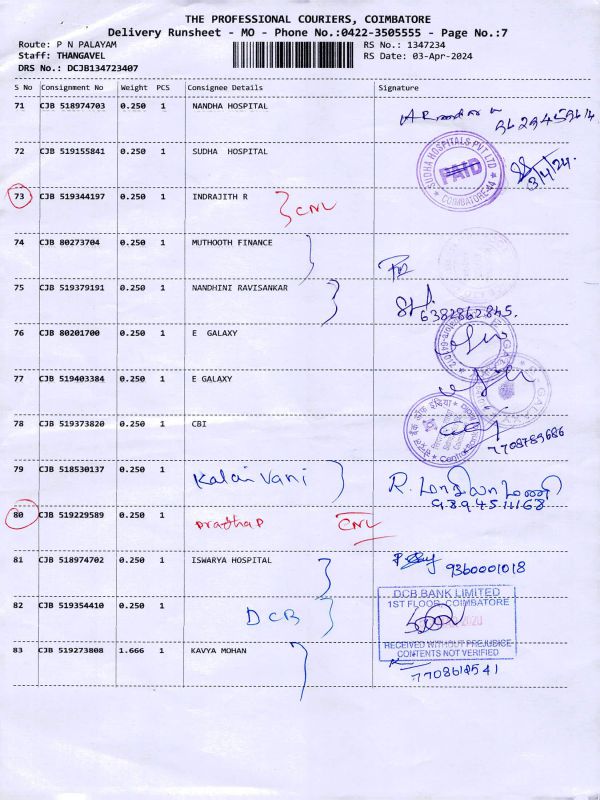 THE PROFESSIONAL COURIERS, COIMBATORE
Delivery Runsheet - MO - Phone No.:0422-3505555 - Page No.:7
Route: P N PALAYAM RS No.: 1347234
Staff: THANGAVEL RS Date: 03-Apr-2024
DRS No.: DCJB134723407
S No Consignment No Weight PCS Consignee Details Signature
71 CJB 518974703 0.250 1 NANDHA HOSPITAL
9629459614
72 CJB 519155841 0.250 1 SUDHA HOSPITAL
SUDHA HOSPITALS PVT LTD
PAID
COIMBATORE-44
3/4/24.
73 CJB 519344197 0.250 1 INDRAJITH R
CNL
74 CJB 80273704 0.250 1 MUTHOOTH FINANCE
75 CJB 519379191 0.250 1 NANDHINI RAVISANKAR
6382862845.
76 CJB 80201700 0.250 1 E GALAXY
77 CJB 519403384 0.250 1 E GALAXY
78 CJB 519373820 0.250 1 CBI
7708789686
79 CJB 518530137 0.250 1 Kalai Vani
9894511168
80 CJB 519229589 0.250 1 Pradhap CNL
81 CJB 518974702 0.250 1 ISWARYA HOSPITAL
9360001018
82 CJB 519354410 0.250 1 DCB
DCB BANK LIMITED
1ST FLOOR, COIMBATORE
RECEIVED WITHOUT PREJUDICE
CONTENTS NOT VERIFIED
83 CJB 519273808 1.666 1 KAVYA MOHAN
7708618541